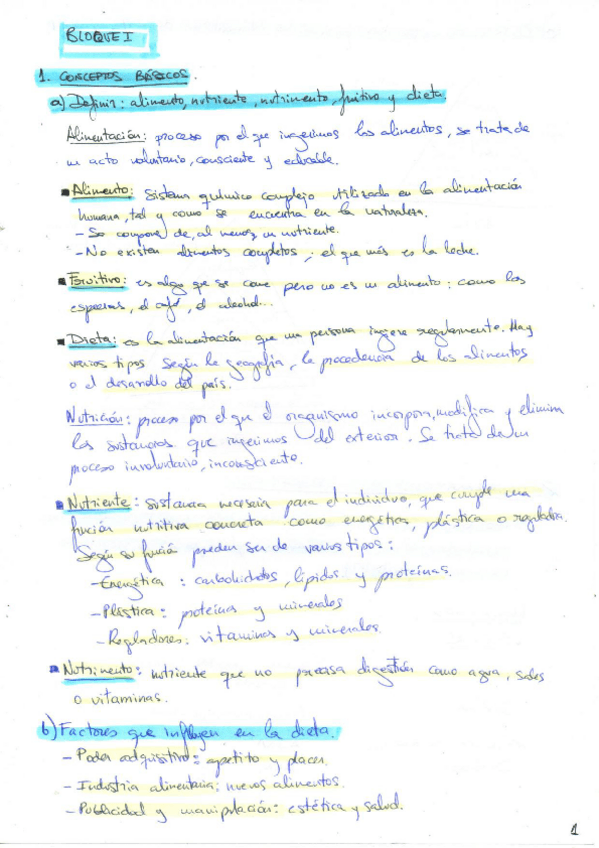 BLOQUE I
1. CONCEPTOS BÁSICOS.
a) Definir: alimento, nutriente, nutrimento, fruitivo y dieta.
Alimentación: proceso por el que ingerimos los alimentos, se trata de
un acto voluntario, consciente y educable.
Alimento: Sistema químico complejo utilizado en la alimentación
humana, tal y como se encuentra en la naturaleza.
- Se compone de, al menos, un nutriente.
- No existen alimentos completos, el que más es la leche.
Fruitivo: es algo que se come pero no es un alimento: como las
especias, el café, el alcohol...
Dieta: es la alimentación que una persona ingiere regularmente. Hay
varios tipos según la geografía, la procedencia de los alimentos
o el desarrollo del país.
Nutrición: proceso por el que el organismo incorpora, modifica y elimina
las sustancias que ingerimos del exterior. Se trata de un
proceso involuntario, inconsciente.
Nutriente: sustancia necesaria para el individuo, que cumple una
función nutritiva concreta como energética, plástica o reguladora.
Según su función pueden ser de varios tipos:
- Energética: carbohidratos, lípidos y proteínas.
- Plástica: proteínas y minerales
- Reguladores: vitaminas y minerales.
Nutrimento: nutriente que no precisa digestión como agua, sales
o vitaminas.
b) Factores que influyen en la dieta.
- Poder adquisitivo: apetito y placer.
- Industria alimentaria: nuevos alimentos.
- Publicidad y manipulación: estética y salud.
1